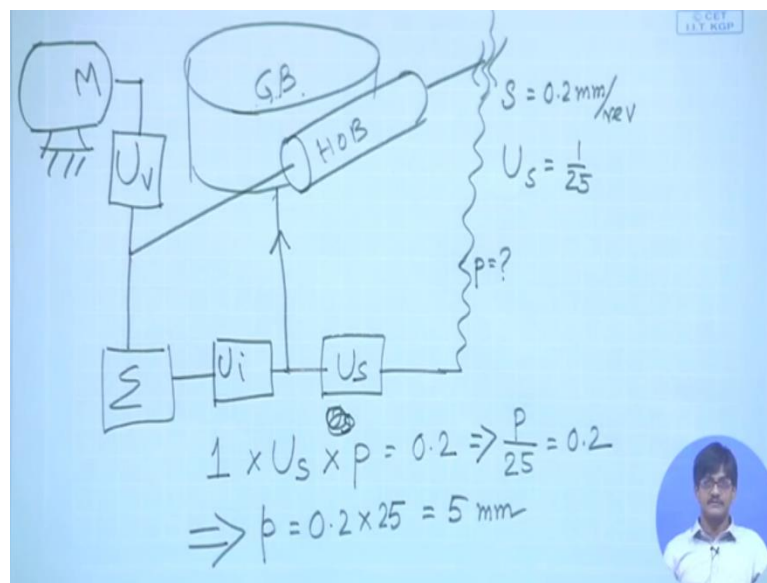 © CET
I.I.T. KGP
M
G.B.
HOB
S = 0.2 mm/rev
U_V
U_S = 1/25
p = ?
Σ
U_i
U_S
1 × U_S × p = 0.2 ⇒ p/25 = 0.2
⇒ p = 0.2 × 25 = 5 mm